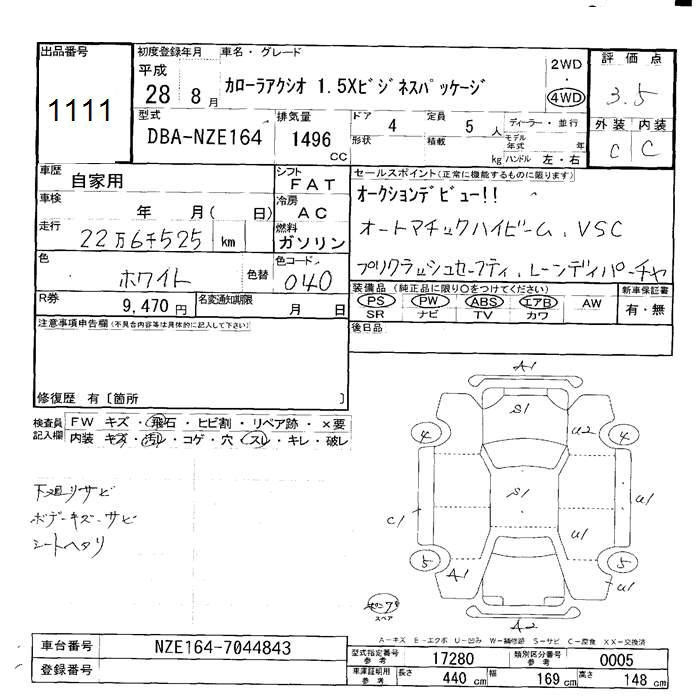 出品番号 初度登録年月 車名・グレード 評価点
1111
平成 28 8月 カローラアクシオ 1.5Xビジネスパッケージ 2WD ・ 4WD 3.5
型式 排気量 ドア 4 定員 5 人 ディーラー・並行 外装 内装
DBA-NZE164 1496 CC 形状 積載 kg モデル年式 年 ハンドル 左・右 C C
車歴 自家用 シフト FAT セールスポイント(正常に機能するものに限ります)
車検 年 月( 日) 冷房 AC オークションデビュー!!
走行 22万6千525 km 燃料 ガソリン オートマチックハイビーム、VSC
色 ホワイト 色替 色コード 040 プリクラッシュセーフティ、レーンディパーチャ
R券 9,470円 名変通知期限 月 日 装備品 (純正品に限り○をつけてください) 新車保証書
PS PW ABS エアB AW 有・無
SR ナビ TV カワ
注意事項申告欄(不具合内容等は具体的に記入して下さい) 後日品
修復歴 有〔箇所 〕
検査員記入欄 FW キズ・飛石・ヒビ割・リペア跡・×要
内装 キズ・汚レ・コゲ・穴・スレ・キレ・破レ
下廻りサビ
ボデーキズ・サビ
シートヘタリ
A1
S1
4 U2 4
C1 S1 U1
U1
5 A1 5
U1
スペア
A2
A-キズ E-エクボ U-凹み W-補修跡 S-サビ C-腐食 XX-交換済
車台番号 NZE164-7044843 型式指定番号 参考 17280 類別区分番号 参考 0005
登録番号 車庫証明用 参考 長さ 440 cm 幅 169 cm 高さ 148 cm